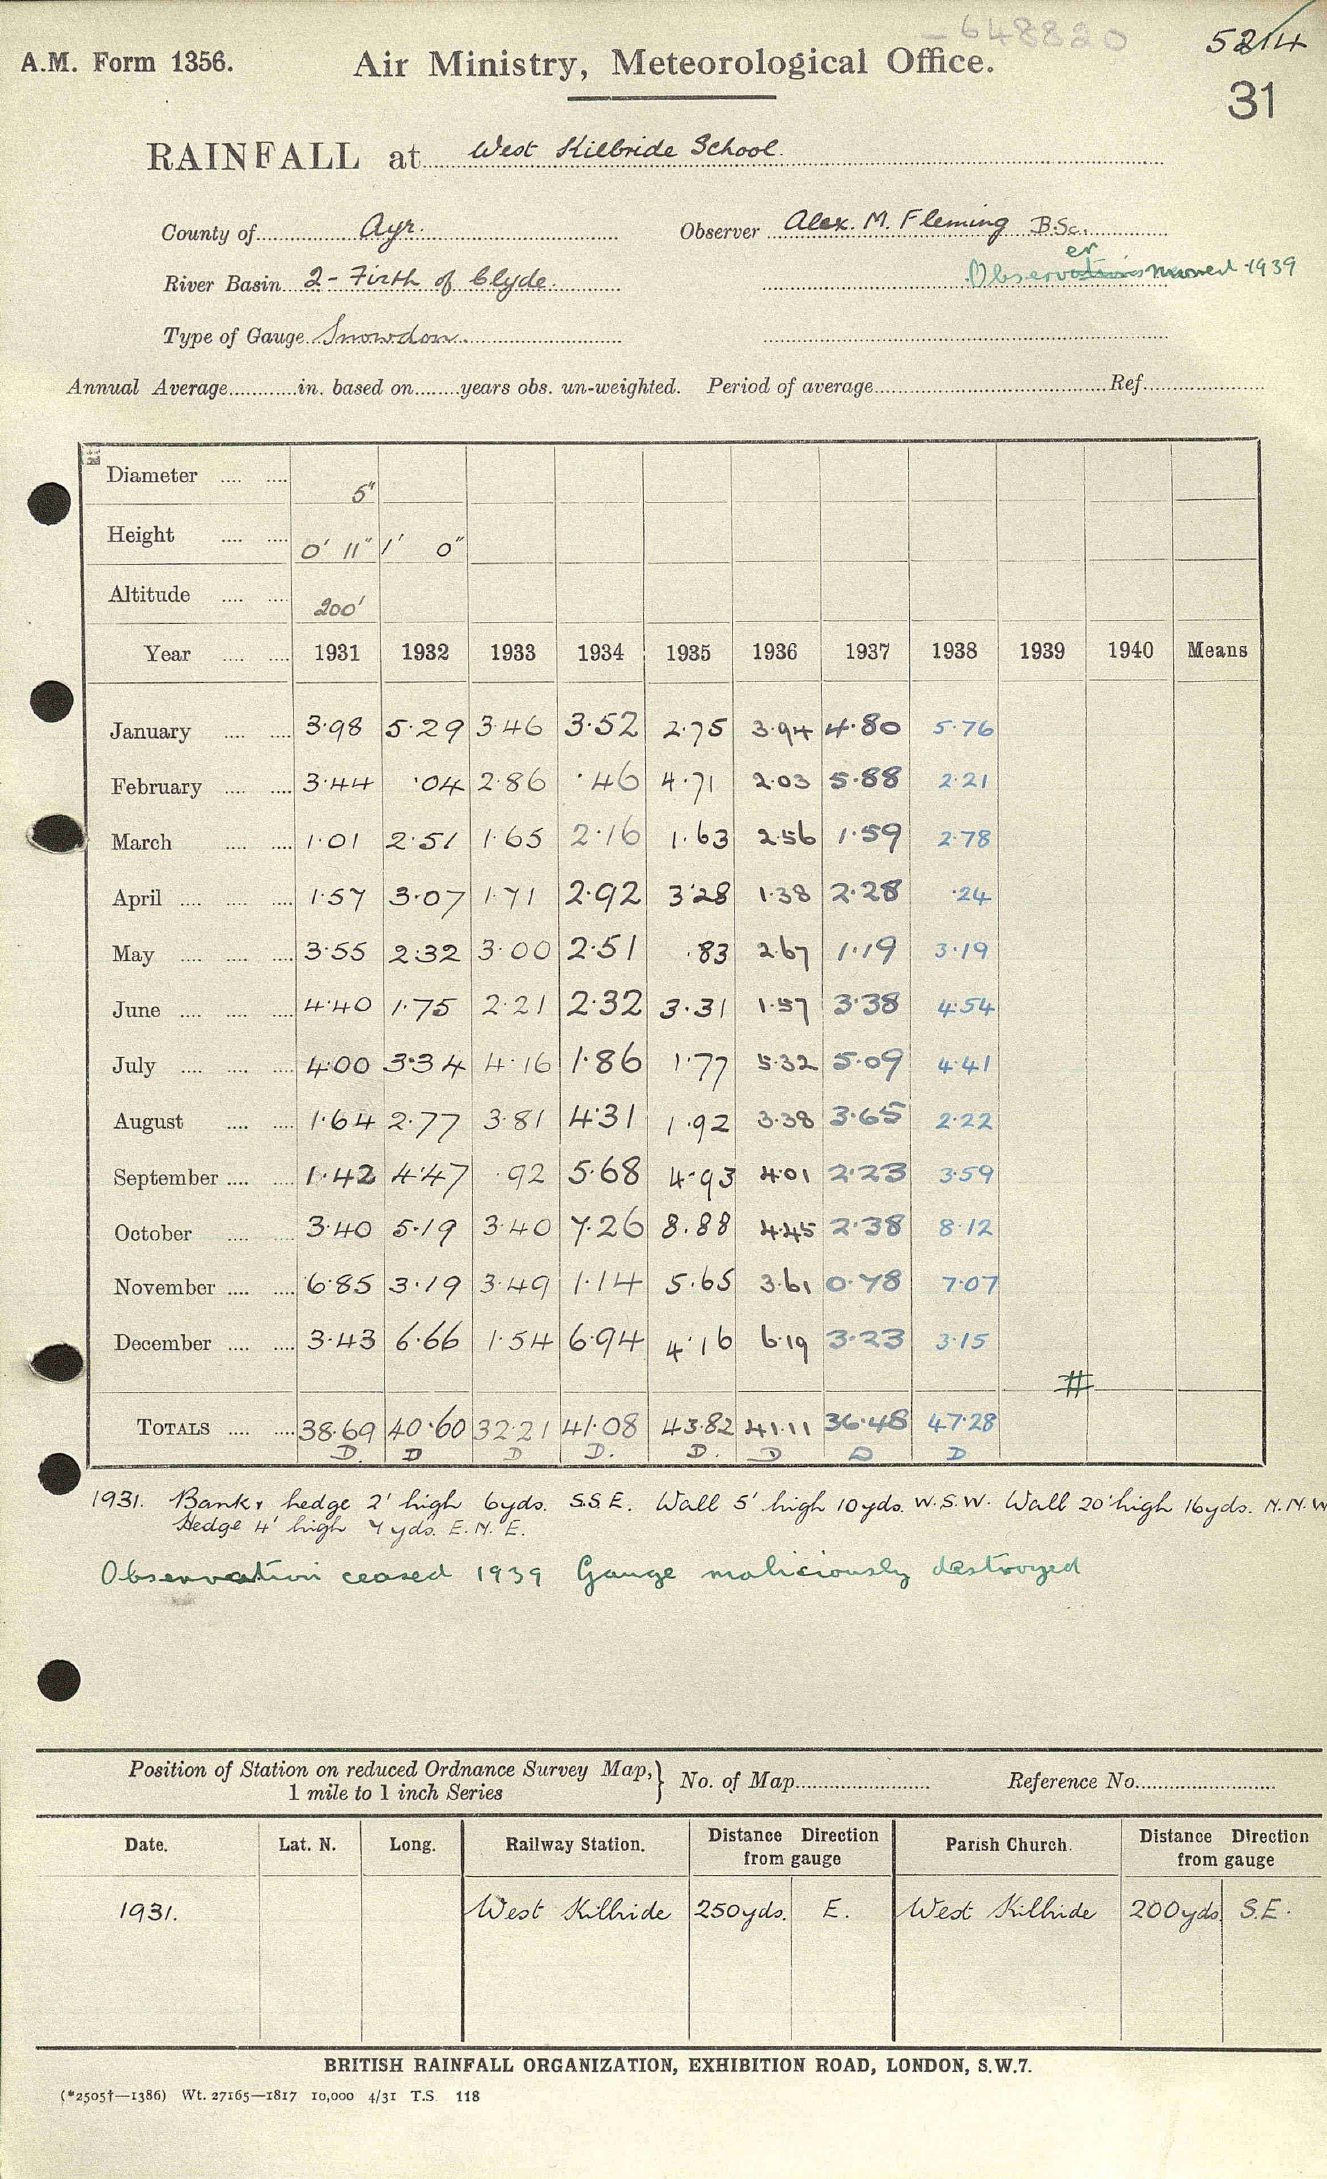 648820
5214
A.M. Form 1356.
Air Ministry, Meteorological Office.
31
RAINFALL at West Kilbride School
County of Ayr. Observer Alex. M. Fleming B.Sc.
er
River Basin 2 - Firth of Clyde. Observations moved 1939
Type of Gauge Snowdon
Annual Average in. based on years obs. un-weighted. Period of average Ref.
Diameter 5"
Height 0' 11" 1' 0"
Altitude 200'
Year 1931 1932 1933 1934 1935 1936 1937 1938 1939 1940 Means
January 3·98 5·29 3·46 3·52 2·75 3·94 4·80 5·76
February 3·44 ·04 2·86 ·46 4·71 2·03 5·88 2·21
March 1·01 2·51 1·65 2·16 1·63 2·56 1·59 2·78
April 1·57 3·07 1·71 2·92 3·28 1·38 2·28 ·24
May 3·55 2·32 3·00 2·51 ·83 2·67 1·19 3·19
June 4·40 1·75 2·21 2·32 3·31 1·57 3·38 4·54
July 4·00 3·34 4·16 1·86 1·77 5·32 5·09 4·41
August 1·64 2·77 3·81 4·31 1·92 3·38 3·65 2·22
September 1·42 4·47 ·92 5·68 4·93 4·01 2·23 3·59
October 3·40 5·19 3·40 7·26 8·88 4·45 2·38 8·12
November 6·85 3·19 3·49 1·14 5·65 3·61 0·78 7·07
December 3·43 6·66 1·54 6·94 4·16 6·19 3·23 3·15
#
TOTALS 38·69 40·60 32·21 41·08 43·82 41·11 36·48 47·28
D. D D D. D. D D D
1931. Bank & hedge 2' high 6yds. S.S.E. Wall 5' high 10yds. W.S.W. Wall 20' high 16yds. N.N.W
Hedge 4' high 7yds. E.N.E.
Observation ceased 1939 Gauge maliciously destroyed
Position of Station on reduced Ordnance Survey Map, } No. of Map Reference No.
1 mile to 1 inch Series
Date. Lat. N. Long. Railway Station. Distance Direction from gauge Parish Church. Distance Direction from gauge
1931. West Kilbride 250yds. E. West Kilbride 200yds S.E.
BRITISH RAINFALL ORGANIZATION, EXHIBITION ROAD, LONDON, S.W.7.
(*2505†—1386) Wt. 27165—1817 10,000 4/31 T.S. 118